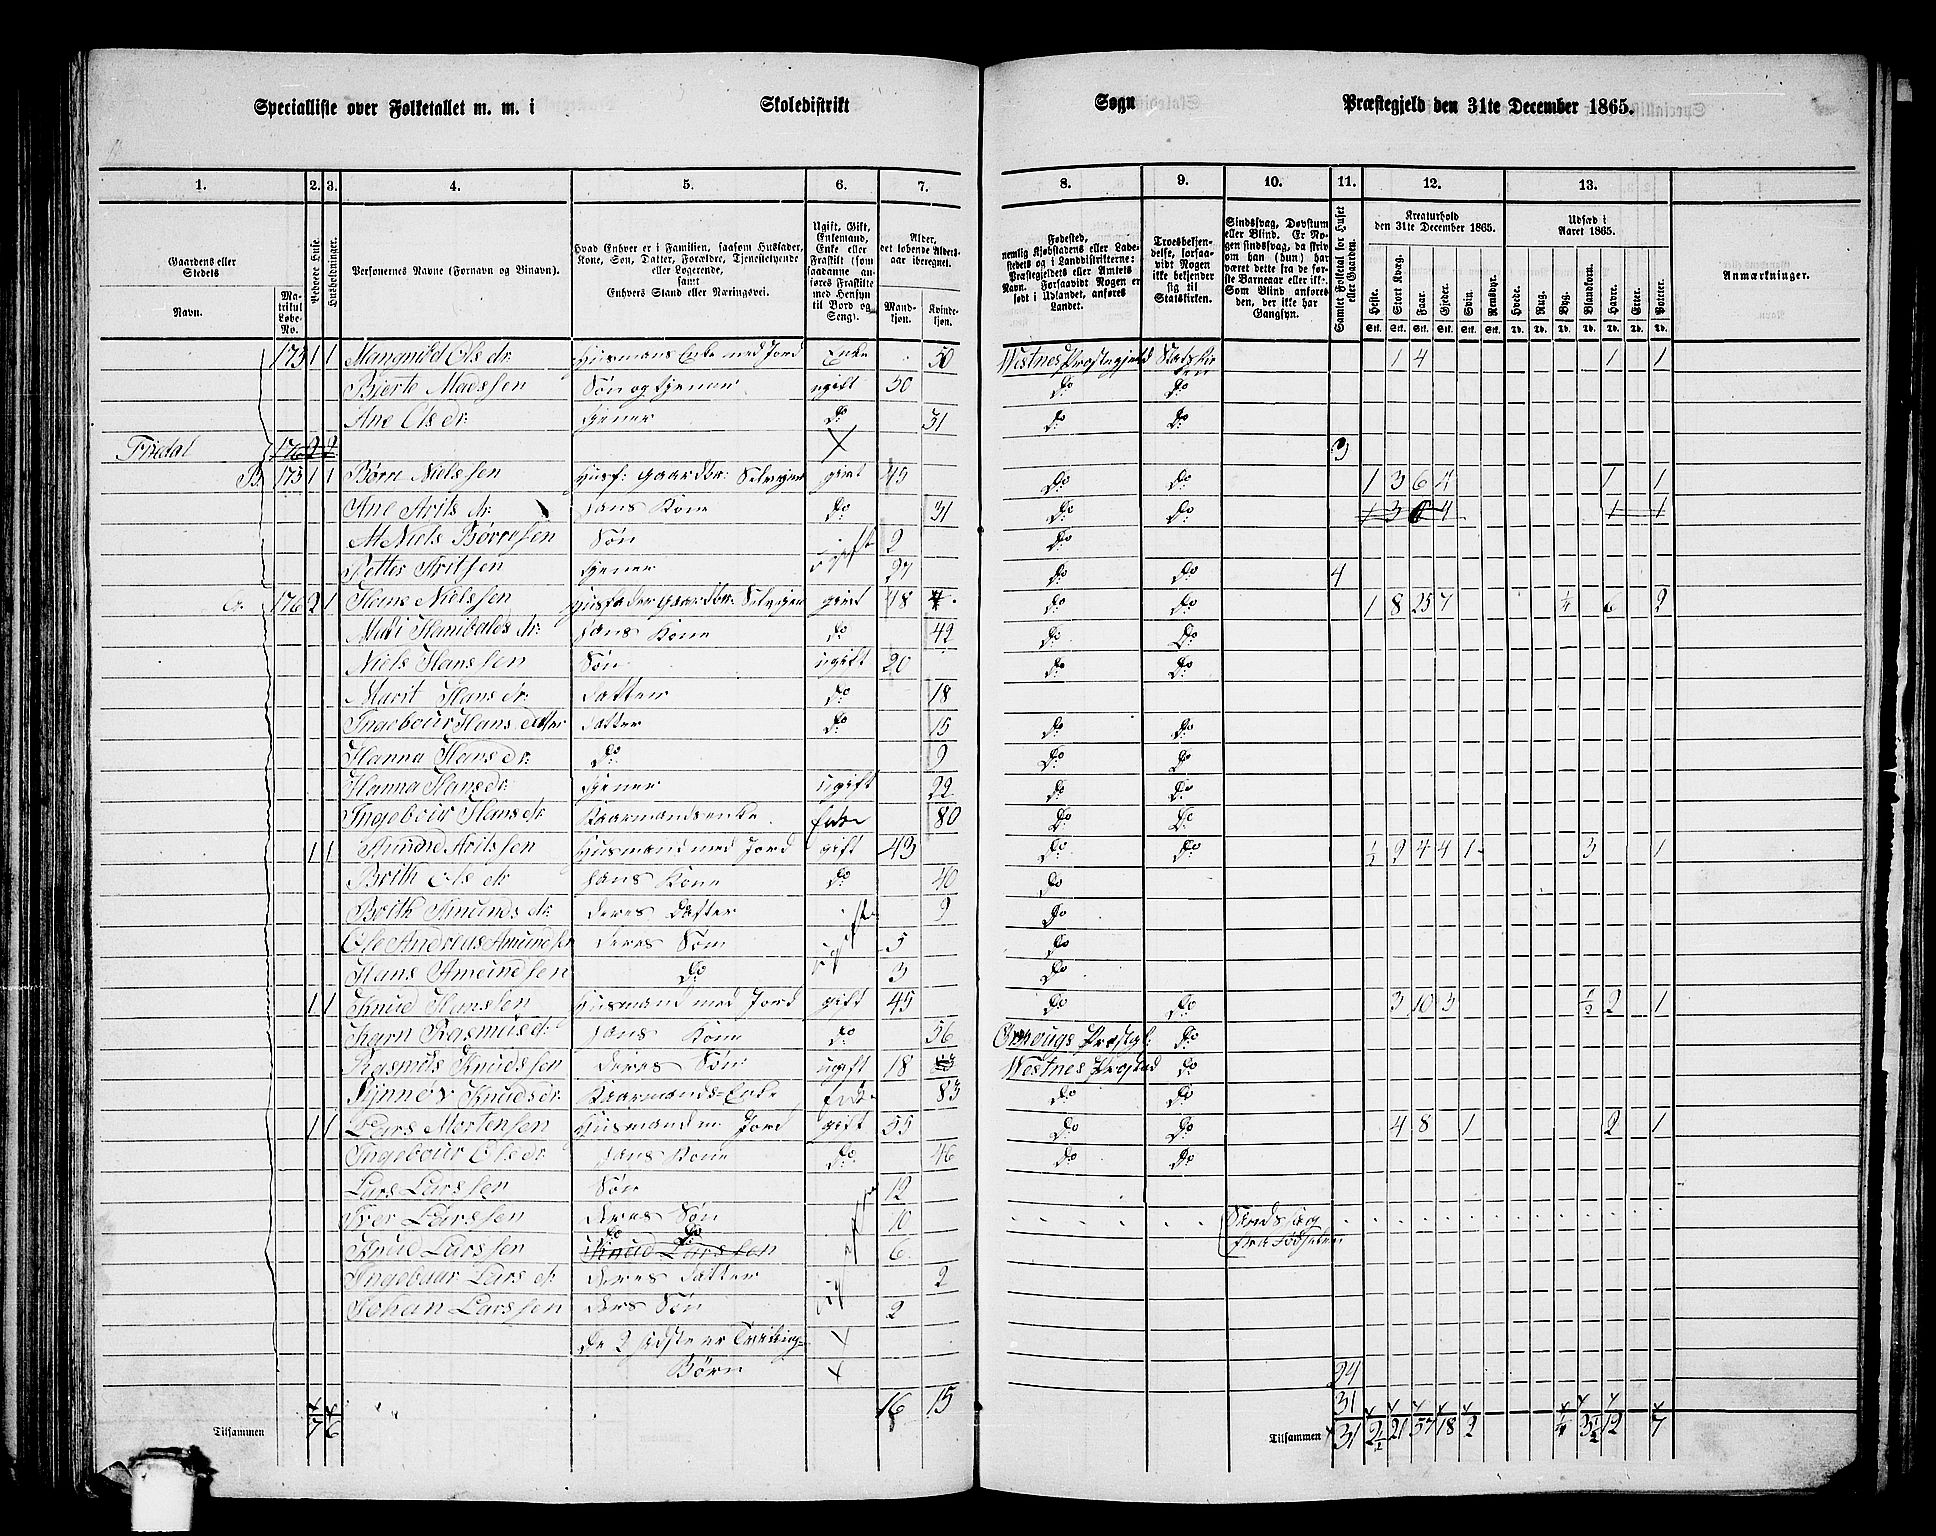 Specialliste over Folketallet m. m. i Skoledistrikt Sogn Præstegjeld den 31te December 1865.
1. 2. 3. 4. 5. 6. 7. 8. 9. 10. 11. 12. 13.
Gaardens eller Stedets
Navn.
Matrikul Løbe-No.
Beboede Huse.
Husholdninger.
Personernes Navne (Fornavn og Binavn).
Hvad Enhver er i Familien, saasom Husfader, Kone, Søn, Datter, Forældre, Tjenestetyende eller Logerende, samt Enhvers Stand eller Næringsvei.
Ugift, Gift, Enkemand, Enke eller Fraskilt (som saadanne anføres Fraskilte med Hensyn til Bord og Seng).
Alder, det løbende Aldersaar iberegnet.
Mandkjøn. Kvindekjøn.
Fødested, nemlig Kjøbstadens eller Ladestedets og i Landdistrikterne: Præstegjeldets eller Amtets Navn. Forsaavidt Nogen er født i Udlandet, anføres Landet.
Troesbekjendelse, forsaavidt Nogen ikke bekjender sig til Statskirken.
Sindssvag, Døvstum eller Blind. Er Nogen sindssvag, da skrives om han (hun) har været dette fra de første Barneaar eller ik. Som Blind anføres den, der ikke har Gangsyn.
Samlet Folketal for Huset eller Gaarden.
Kreaturhold den 31te December 1865.
Heste. Stort Kvæg. Faar. Gjeder. Svin. Rensdyr.
Udsæd i Aaret 1865.
Hvede. Rug. Byg. Blandkorn. Havre. Erter. Poteter.
Anmærkninger.
173 1 1 Ols dr. Husmans Enke med Jord Enke 50 Westnes Præstegjeld Statskirken 1 4 1 1
Bjerte Madssen Søn og tjener ugift 50 do do
Ane Ols dr. tjener do 31 do do
176 2 2 3
B. 173 1 1 Børn Nielssen Husf: Gaardbr: Selveier givt 45 do do 1 3 6 4 1 1
Ane Arits dr. Hans Kone do 31 do do 1 3 6 4 1 1
Niels Børnssen Søn ugift 2 do
Petter Aritsen tjener 27 do do 4
C. 176 2 1 Hans Nielssen Husfader Gaardbr: Selveier givt 48 do do 1 8 25 7 1/4 6 2
Hanibals dr: Hans Kone do 42 do do
Niels Hanssen Søn ugift 20 do do
Marit Hans dr. Datter do 18
Ingebour Hans datter Datter do 15 do do
Hanna Hans dr. do 9 do do
Hanna Hansdr. tjener ugift 22 do do
Ingebour Hans dr. Kaarmandsenke Enke 80 do do
1 1 Amund Aritssen Husmand med Jord gift 43 do do 1/2 2 4 4 1 3 1
Brith Ols dr. Hans Kone do 40 do
Brith Amunds dr. deres Datter ugift 9 do
Ole Andreas Amundsen deres Søn 5 do
Hans Amundsen do 3 do
1 1 Knud Hanssen Husmand med Jord gift 45 do do 3 10 3 1/2 2 1
Karn Rasmusdr. Hans Kone do 56 Præstgl: do
Rasmus Knudssen deres Søn ugift 18 Westnes do
Synnøv Knudsdr. Kaarmands-Enke Enke 83 do do
1 1 Lars Mortensen Husmand m Jord gift 55 do do 4 8 1 2 1
Ingebour Olsdr. Hans Kone do. 46 do do
Lars Larssen Søn 12
Iver Larssen deres Søn 10 Sindssvag
Knud Larssen do do Knud Larssen 6 fra Fødselen
Ingebaar Lars dr. deres Datter ugift 2
Johan Larssen deres Søn 2
De 2 sidste er Tvilling-
Børn 24
16 15 31
Tilsammen 7 6 Tilsammen 31 2 1/2 21 57 18 2 1/4 3 1/2 12 7